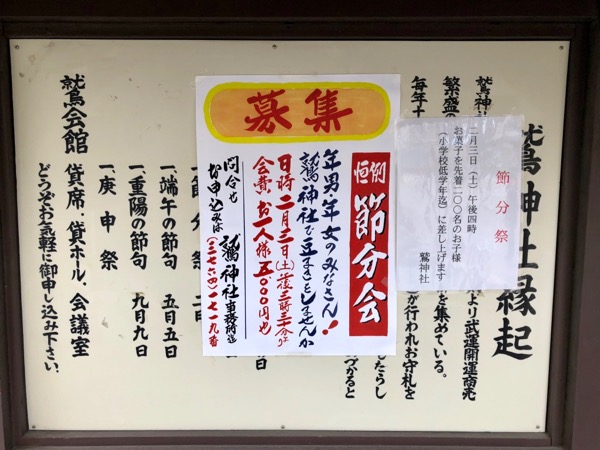 鷲神社縁起
鷲神社
繁盛の
毎年十
より武運開運商売
を集めている。
が行われお守札を
したらし
づかると
節分祭
二月三日（土）午後四時
お菓子を先着二〇〇名のお子様
（小学校低学年迄）に差し上げます
鷲神社
募集
恒例 節分会
年男・年女のみなさん！
鷲神社で豆まきをしませんか
日時 二月三日（土）午後三時三十分より
会費 お一人様 五〇〇〇円也
問合せ
お申込みは
鷲神社 事務所迄
（三七六四）一七一九番
日
一、節分祭 二月
一、端午の節句 五月五日
一、重陽の節句 九月九日
一、庚申祭
鷲会館 貸席、貸ホール、会議室
どうぞお気軽に御申し込み下さい。